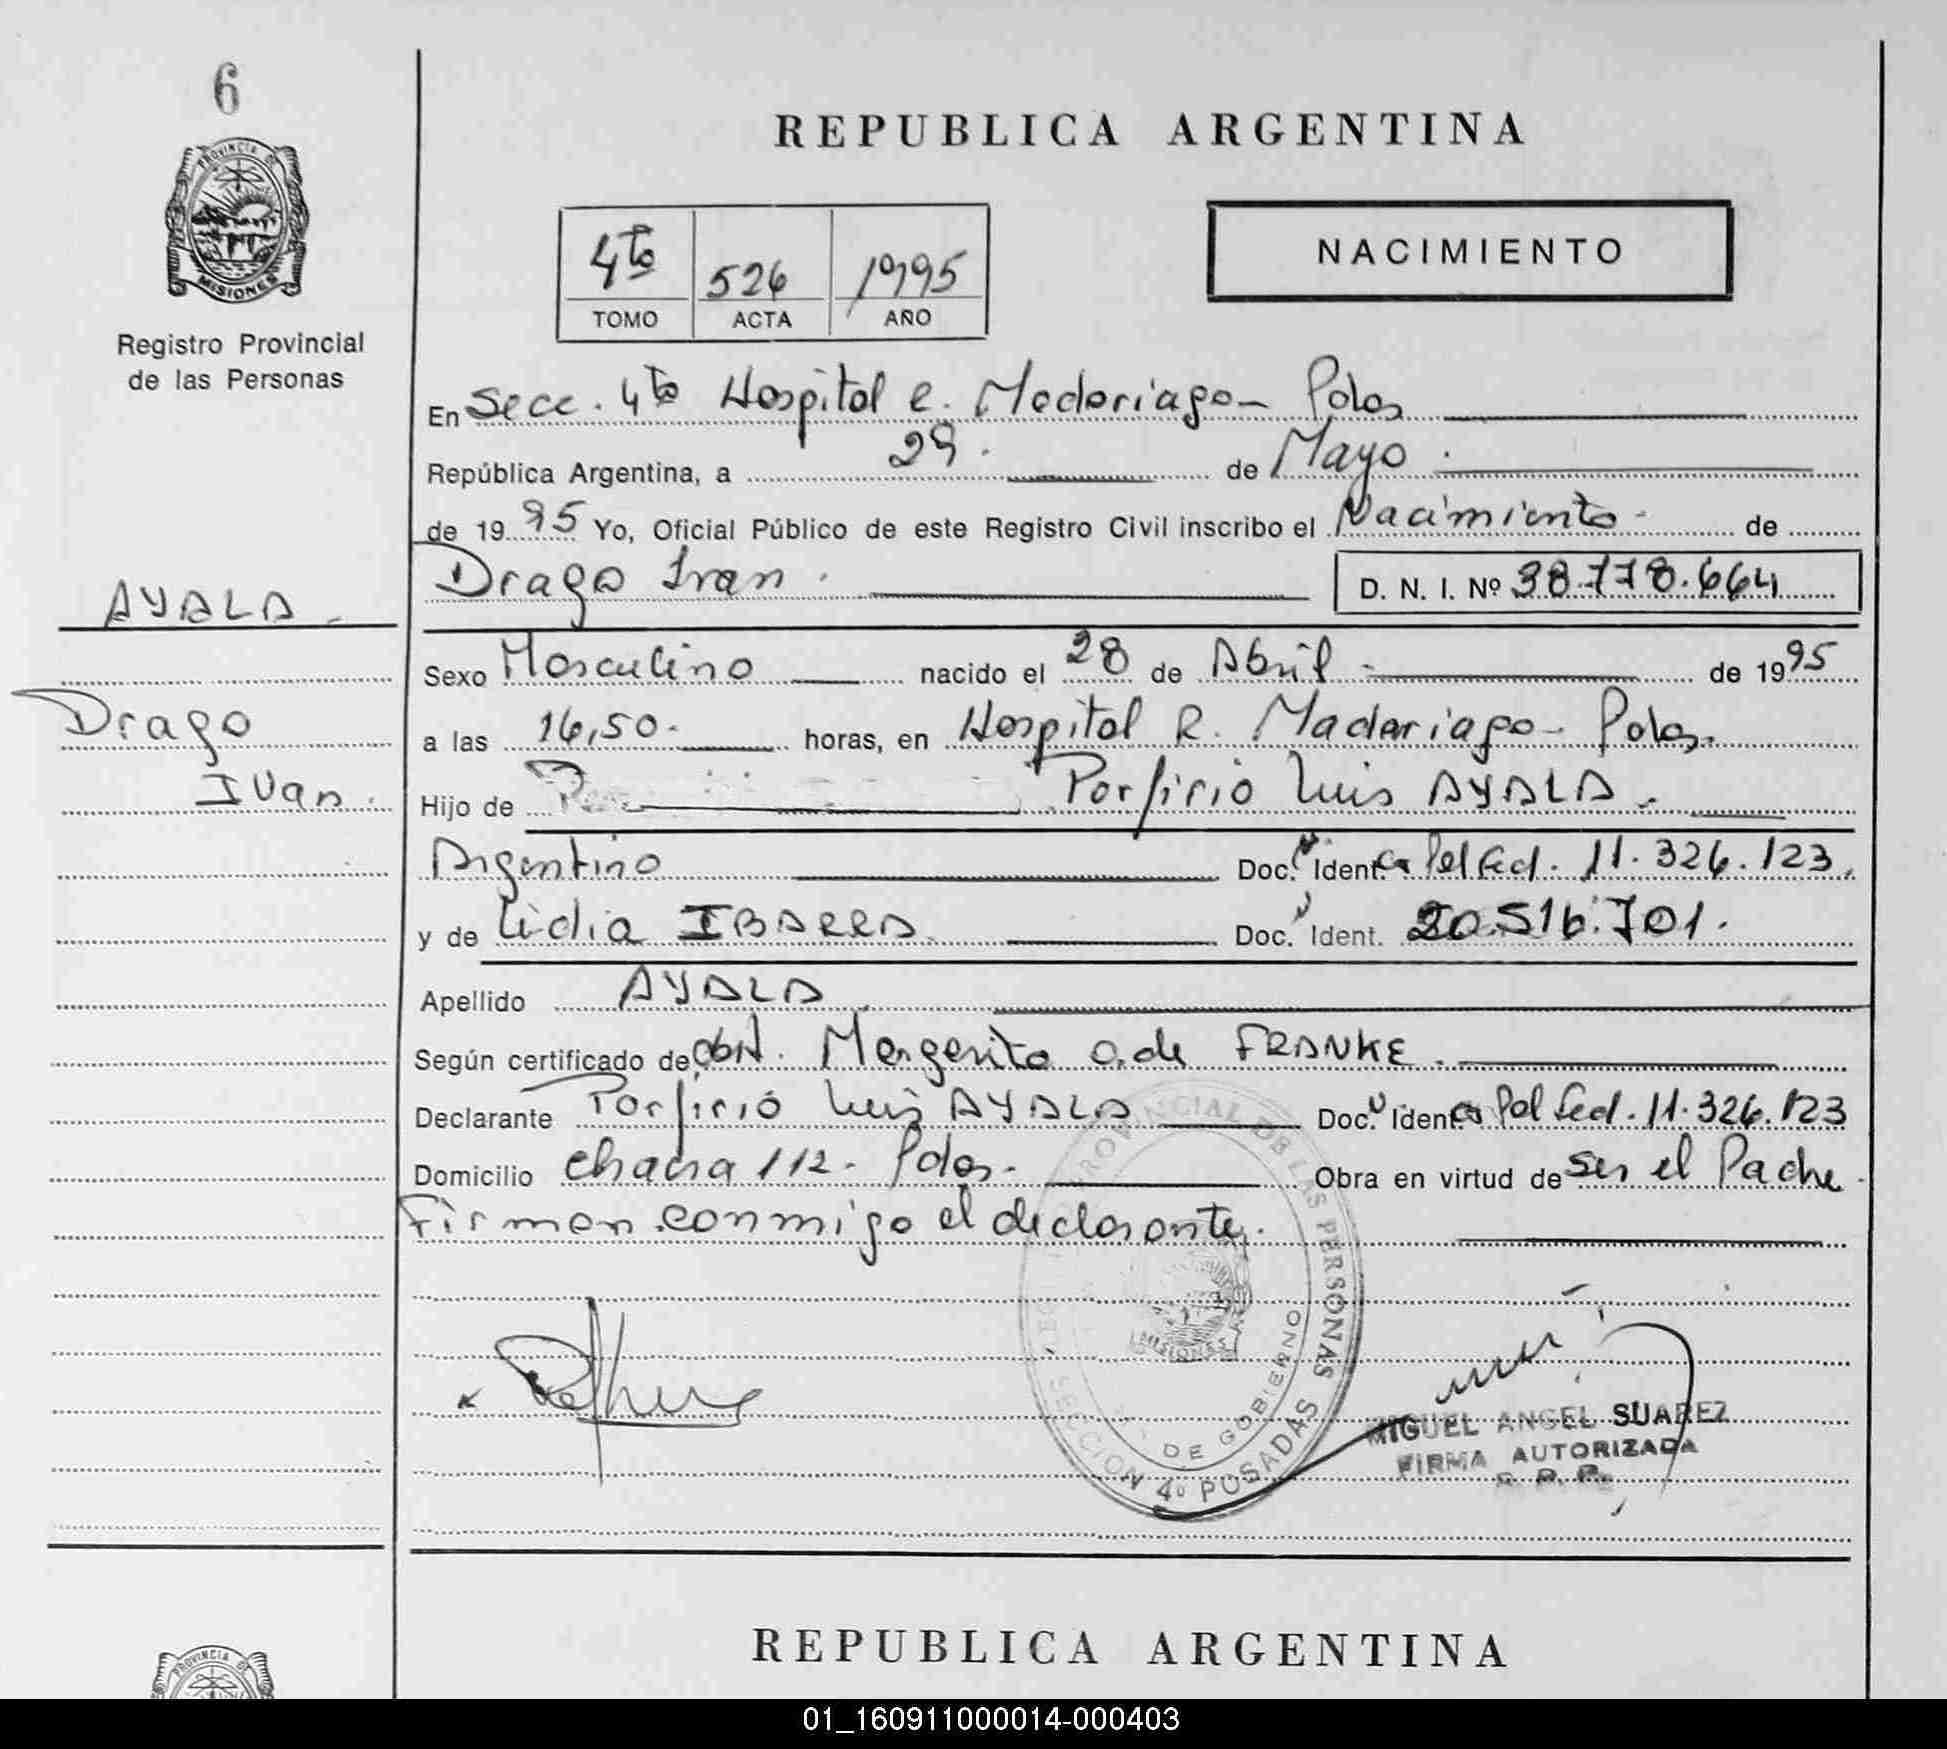 6
REPUBLICA ARGENTINA
PROVINCIA DE
MISIONES
Registro Provincial
de las Personas
4to 526 1995
TOMO ACTA AÑO
NACIMIENTO
En Secc. 4to Hospital R. Madariaga - Pdas
República Argentina, a 29. de Mayo.
de 1995 Yo, Oficial Público de este Registro Civil inscribo el Nacimiento - de
Drago Ivan. D. N. I. Nº 38.778.664
AYALA -
Sexo Masculino nacido el 28 de Abril - de 1995
Drago
a las 16,50. horas, en Hospital R. Madariaga - Pdas.
Ivan.
Hijo de Porfirio Luis AYALA.
Argentino Doc. Ident. Ca Pol Fed. 11.326.123.
y de Lidia IBARRA. Doc. Ident. 20.516.701.
Apellido AYALA.
Según certificado de Obst. Margarita O. de FRANKE.
Declarante Porfirio Luis AYALA Doc. Ident. Ca Pol Fed. 11.326.123
Domicilio Chacra 112 - Pdas. Obra en virtud de ser el Padre.
Firman conmigo el declarante.
PROVINCIAL DE LAS PERSONAS
MISIONES
DE GOBIERNO
SECCION 4º POSADAS
MIGUEL ANGEL SUAREZ
FIRMA AUTORIZADA
R. P. P.
REPUBLICA ARGENTINA
PROVINCIA DE
01_160911000014-000403